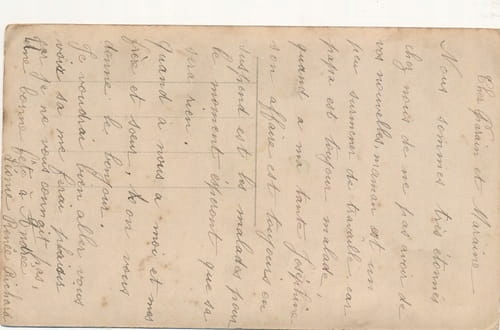 Cher Parain et Maraine
Nous sommes très étonnés
chez nous de ne pas avoir de
vos nouvelles, maman est un
peu surmener de travaille car
papa est toujour malade,
quand a ma tante Joséphine
son affaire est toujours en
suspend est les malades pour
le moment espèront que sa
sera rien.
Quand a nous a moi et mes
frère et sœur, on vous
donne le bonjour.
Je voudrai bien aller vous
voir sa me ferai plaisir
car je ne vous connait pas,
Une bonne fête à Andrée
Renée Richard